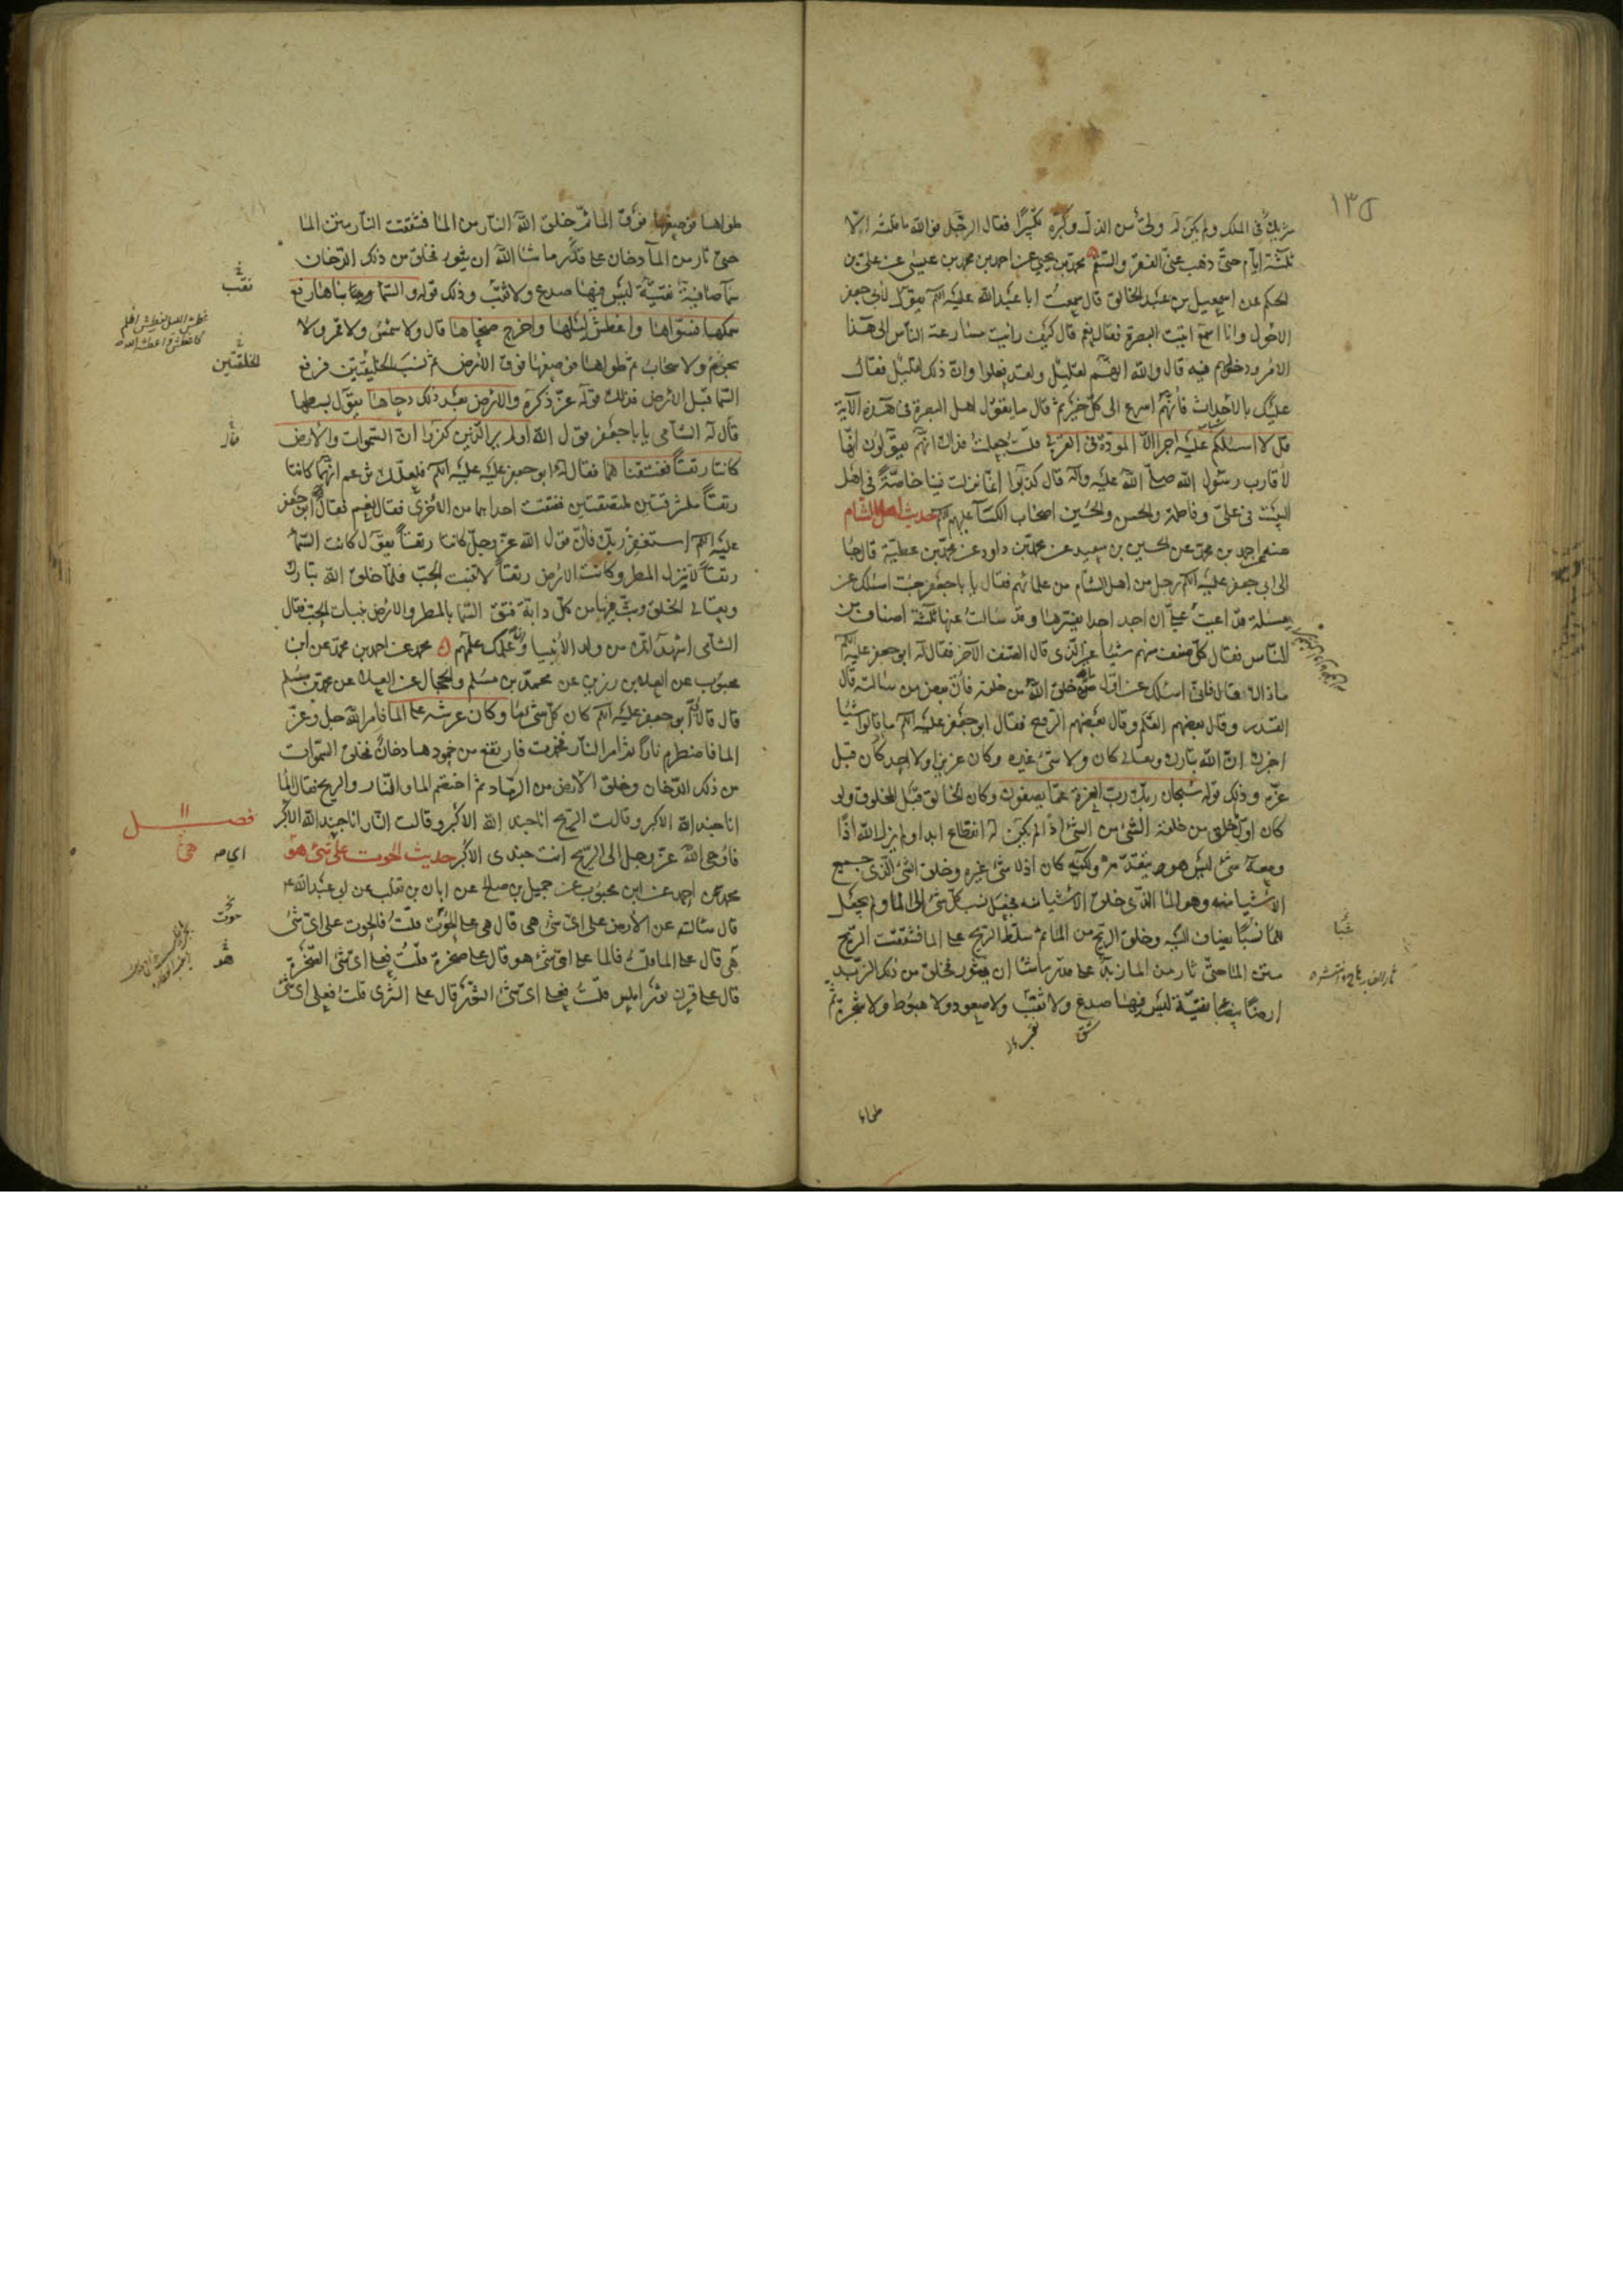 ١٣٥
شريك في الملك ولم يكن له ولي من الذل وكبره تكبيرًا فقال الرجل فوالله ما قلته الا
ثلثة ايام حتى ذهب عني الفقر والسقم محمد بن يحيى عن احمد بن محمد بن عيسى عن علي بن
الحكم عن اسمعيل بن عبد الخالق قال سمعت ابا عبد الله عليه السلم يقول لابي جعفر
الاحول وانا اسمع اتيت البصرة فقال نعم قال كيف رايت مسارعة الناس الى هذا
الامر ودخولهم فيه قال والله انهم لقليل ولقد فعلوا وان ذلك لقليل فقال
عليك بالاحداث فانهم اسرع الى كل خير ثم قال ما يقول اهل البصرة في هذه الآية
قل لا اسئلكم عليه اجرا الا المودة في القربى قلت جعلت فداك انهم يقولون انها
لأقارب رسول الله صلى الله عليه وآله قال كذبوا انما نزلت فينا خاصة في اهل
البيت في علي وفاطمة والحسن والحسين اصحاب الكسآ عليهم السلم حديث اهل الشام
عنه عن احمد بن محمد عن الحسين بن سعيد عن محمد بن داود عن محمد بن عطية قال جآ
الى ابي جعفر عليه السلم رجل من اهل الشام من علمائهم فقال يا با جعفر جئت اسئلك عن
مسئلة قد اعيت علي ان اجد احدا يفسرها وقد سالت عنها ثلثة اصناف من
الناس فقال كل صنف منهم شيئا غير الذي قال الصنف الآخر فقال له ابو جعفر عليه السلم
ما ذاك فقال فاني اسئلك عن اول ما خلق الله من خلقه فان بعض من سالته قال
القدر وقال بعضهم القلم وقال بعضهم الروح فقال ابو جعفر عليه السلم ما قالوا شيئا
اخبرك ان الله تبارك وتعالى كان ولا شئ غيره وكان عزيزا ولا احد كان قبل
عزه وذلك قوله سبحان ربك رب العزة عما يصفون وكان الخالق قبل المخلوق ولو
كان اول ما خلق من خلقه الشئ من الشئ اذًا لم يكن له انقطاع ابدا ولم يزل الله اذًا
ومعه شئ ليس هو يتقدمه ولكنه كان اذ لا شئ غيره وخلق الشئ الذي جميع
الاشيا منه وهو المآ الذي خلق الاشيا منه فجعل نسب كل شئ الى المآ ولم يجعل
للمآ نسبًا يضاف اليه وخلق الريح من المآ ثم سلط الريح على المآ فشققت الريح
متن المآ حتى ثار من المآ زبد على قدر ما شا ان يثور فخلق من ذلك الزبد
ارضًا بيضا نقية ليس فيها صدع ولا ثقب ولا صعود ولا هبوط ولا شجرة ثم
شق
طواها
طواها فوضعها فوق المآ ثم خلق الله النار من المآ فشققت النار متن المآ
حتى ثار من المآ دخان على قدر ما شا الله ان يثور فخلق من ذلك الدخان
سمآ صافية نقية ليس فيها صدع ولا ثقب وذلك قوله والسمآ بناها رفع
سمكها فسواها واغطش ليلها واخرج ضحاها قال ولا شمس ولا قمر ولا
نجوم ولا سحاب ثم طواها فوضعها فوق الارض ثم نسب الخليقتين فرفع
السما قبل الارض فذلك قوله عز ذكره والارض بعد ذلك دحاها يقول بسطها
قال له الشامي يا با جعفر قول الله اولم ير الذين كفروا ان السموات والارض
كانتا رتقًا ففتقناهما فقال له ابو جعفر عليه السلم فلعلك تزعم انهما كانتا
رتقًا ملتزقتين ملتصقتين ففتقت احداهما من الاخرى فقال نعم فقال ابو جعفر
عليه السلم استغفر ربك فان قول الله عز وجل كانتا رتقًا يقول كانت السمآ
رتقًا لا تنزل المطر وكانت الارض رتقًا لا تنبت الحب فلما خلق الله تبارك
وتعالى الخلق وبث فيها من كل دابة فتق السما بالمطر والارض بنبات الحب فقال
الشامي اشهد انك من ولد الانبيا وان علمك علمهم محمد عن احمد بن محمد عن ابن
محبوب عن العلا بن رزين عن محمد بن مسلم والحجال عن العلا عن محمد بن مسلم
قال قال لي ابو جعفر عليه السلم كان كل شئ مآ وكان عرشه على المآ فامر الله جل وعز
المآ فاضطرم نارًا ثم امر النار فخمدت فارتفع من خمودها دخان فخلق السموات
من ذلك الدخان وخلق الارض من الرماد ثم اختصم الما والنار والريح فقال المآ
انا جند الله الاكبر وقالت الريح انا جند الله الاكبر وقالت النار انا جند الله الاكبر
فاوحى الله عز وجل الى الريح انت جندي الاكبر حديث الحوت على اي شئ هو
محمد عن احمد عن ابن محبوب عن جميل بن صالح عن ابان بن تغلب عن ابي عبد الله ع
قال سالته عن الارض على اي شئ هي قال هي على الحوت قلت فالحوت على اي شئ
هو قال على المآ قلت فالمآ على اي شئ هو قال على صخرة قلت فعلى اي شئ الصخرة
قال على قرن ثور املس قلت فعلى اي شئ الثور قال على الثرى قلت فعلى اي شئ
ثقب
الخلقتين
فصل
هي
حوت
هو